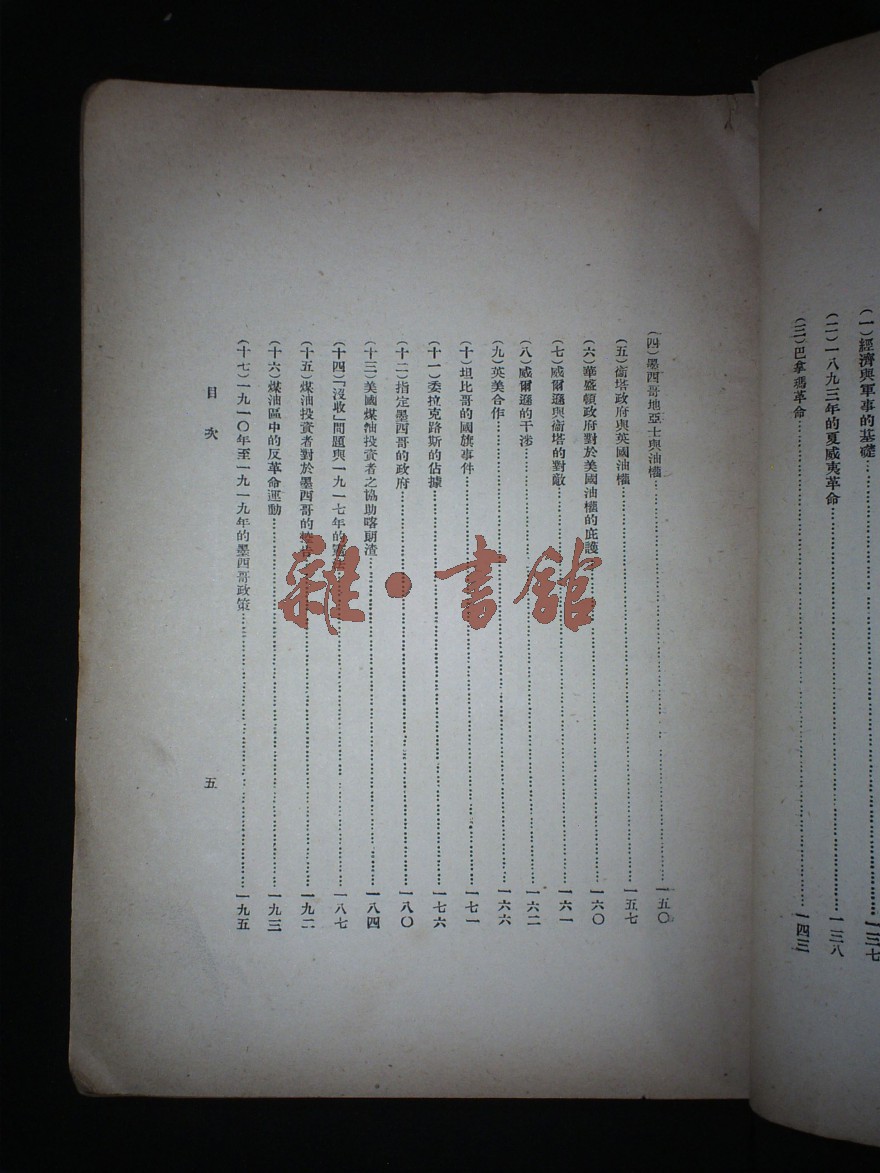 (一)經濟與軍事的基礎……一三七
(二)一八九三年的夏威夷革命……一三八
(三)巴拿瑪革命……一四三
(四)墨西哥地亞士與油權……一五〇
(五)衞塔政府與英國油權……一五七
(六)華盛頓政府對於美國油權的庇護……一六〇
(七)威爾遜與衞塔的對敵……一六一
(八)威爾遜的干涉……一六二
(九)英美合作……一六六
(十)坦比哥的國旗事件……一七一
(十一)委拉克路斯的佔據……一七六
(十二)指定墨西哥的政府……一八〇
(十三)美國煤油投資者之協助喀蘭渣……一八四
(十四)「沒收」問題與一九一七年的……一八七
(十五)煤油投資者對於墨西哥的……一九二
(十六)煤油區中的反革命運動……一九三
(十七)一九一〇年至一九一九年的墨西哥政策……一九五
目次
五
雜·書館